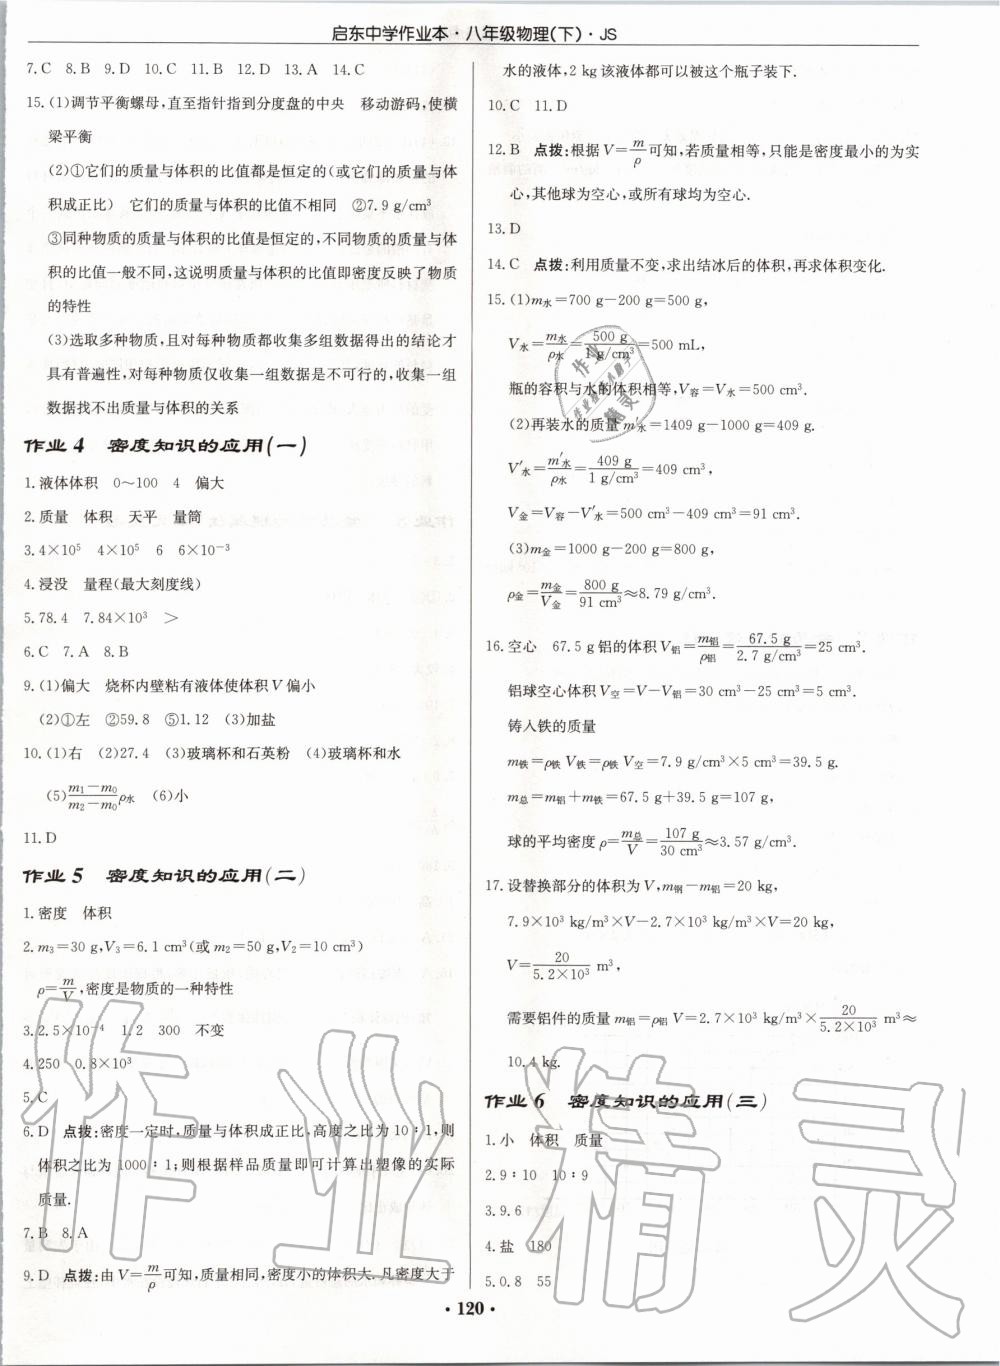 启东中学作业本·八年级物理(下)·JS
7.C 8.B 9.D 10.C 11.B 12.D 13.A 14.C
15.(1)调节平衡螺母,直至指针指到分度盘的中央 移动游码,使横
梁平衡
(2)①它们的质量与体积的比值都是恒定的(或它们的质量与体
积成正比) 它们的质量与体积的比值不相同 ②7.9 g/cm³
③同种物质的质量与体积的比值是恒定的,不同物质的质量与体
积的比值一般不同,这说明质量与体积的比值即密度反映了物质
的特性
(3)选取多种物质,且对每种物质都收集多组数据得出的结论才
具有普遍性,对每种物质仅收集一组数据是不可行的,收集一组
数据找不出质量与体积的关系
作业4 密度知识的应用(一)
1.液体体积 0～100 4 偏大
2.质量 体积 天平 量筒
3.4×10⁵ 4×10⁵ 6 6×10⁻³
4.浸没 量程(最大刻度线)
5.78.4 7.84×10³ >
6.C 7.A 8.B
9.(1)偏大 烧杯内壁粘有液体使体积V偏小
(2)①左 ②59.8 ⑤1.12 (3)加盐
10.(1)右 (2)27.4 (3)玻璃杯和石英粉 (4)玻璃杯和水
(5)(m₁−m₀)/(m₂−m₀)ρ水 (6)小
11.D
作业5 密度知识的应用(二)
1.密度 体积
2.m₃=30 g,V₃=6.1 cm³(或m₂=50 g,V₂=10 cm³)
ρ=m/V,密度是物质的一种特性
3.2.5×10⁻⁴ 1.2 300 不变
4.250 0.8×10³
5.C
6.D 点拨:密度一定时,质量与体积成正比,高度之比为10∶1,则
体积之比为1000∶1;则根据样品质量即可计算出塑像的实际
质量.
7.B 8.A
9.D 点拨:由V=m/ρ可知,质量相同,密度小的体积大.凡密度大于
水的液体,2 kg该液体都可以被这个瓶子装下.
10.C 11.D
12.B 点拨:根据V=m/ρ可知,若质量相等,只能是密度最小的为实
心,其他球为空心,或所有球均为空心.
13.D
14.C 点拨:利用质量不变,求出结冰后的体积,再求体积变化.
15.(1)m水=700 g−200 g=500 g,
V水=m水/ρ水=500 g/1 g/cm³=500 mL,
瓶的容积与水的体积相等,V容=V水=500 cm³.
(2)再装水的质量m′水=1409 g−1000 g=409 g.
V′水=m′水/ρ水=409 g/1 g/cm³=409 cm³,
V金=V容−V′水=500 cm³−409 cm³=91 cm³.
(3)m金=1000 g−200 g=800 g,
ρ金=m金/V金=800 g/91 cm³≈8.79 g/cm³.
16.空心 67.5 g铝的体积V铝=m铝/ρ铝=67.5 g/2.7 g/cm³=25 cm³.
铝球空心体积V空=V−V铝=30 cm³−25 cm³=5 cm³.
铸入铁的质量
m铁=ρ铁V铁=ρ铁V空=7.9 g/cm³×5 cm³=39.5 g.
m总=m铝+m铁=67.5 g+39.5 g=107 g,
球的平均密度ρ=m总/V=107 g/30 cm³≈3.57 g/cm³.
17.设替换部分的体积为V,m钢−m铝=20 kg,
7.9×10³ kg/m³×V−2.7×10³ kg/m³×V=20 kg,
V=20/5.2×10³ m³,
需要铝件的质量m铝=ρ铝V=2.7×10³ kg/m³×20/5.2×10³ m³≈
10.4 kg.
作业6 密度知识的应用(三)
1.小 体积 质量
2.9∶10 10∶9
3.9.6
4.盐 180
5.0.8 55
·120·
作业精灵